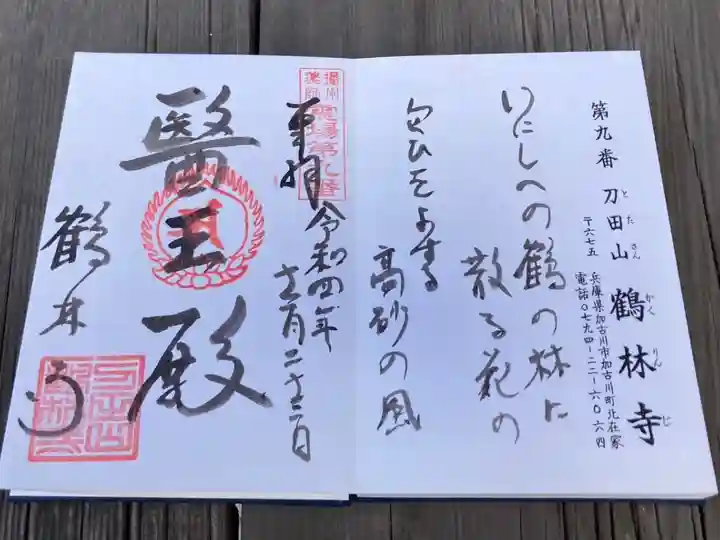 第九番 刀田山 鶴林寺
とたさん かくりんじ
〒六七五 兵庫県加古川市加古川町北在家
電話〇七九四-二二-六〇六四
いにしへの鶴の林に
散る花の
匂ひをよする
高砂の風
播州薬師霊場第九番
奉拝 令和四年
十二月二十三日
醫王殿
鶴林寺